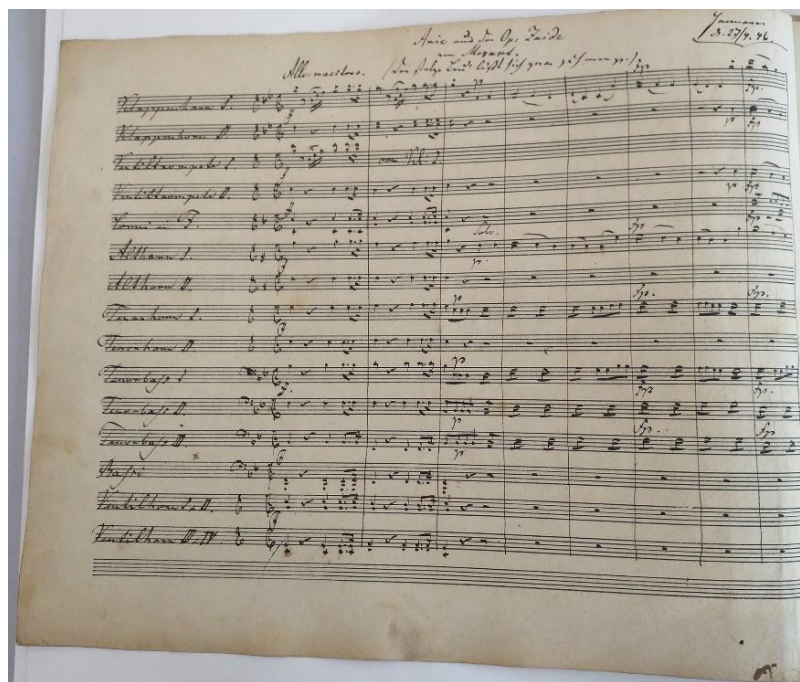 Arie aus der Op. Zaide
von Mozart.
(Der stolze Löw' läßt sich zwar zähmen pp.)
Hannover
d. 27/4. 46.
Allo. maestoso.
Klappenhorn I.
Klappenhorn II.
Ventiltrompete I.
Ventiltrompete II.
Corni in F.
Althorn I.
Althorn II.
Tenorhorn I.
Tenorhorn II.
Tenorbass I
Tenorbass II.
Tenorbass III
Bassi
Ventilhorn I. u. II.
Ventilhorn III. u. IV
Solo.
fp.
fp.
p
p